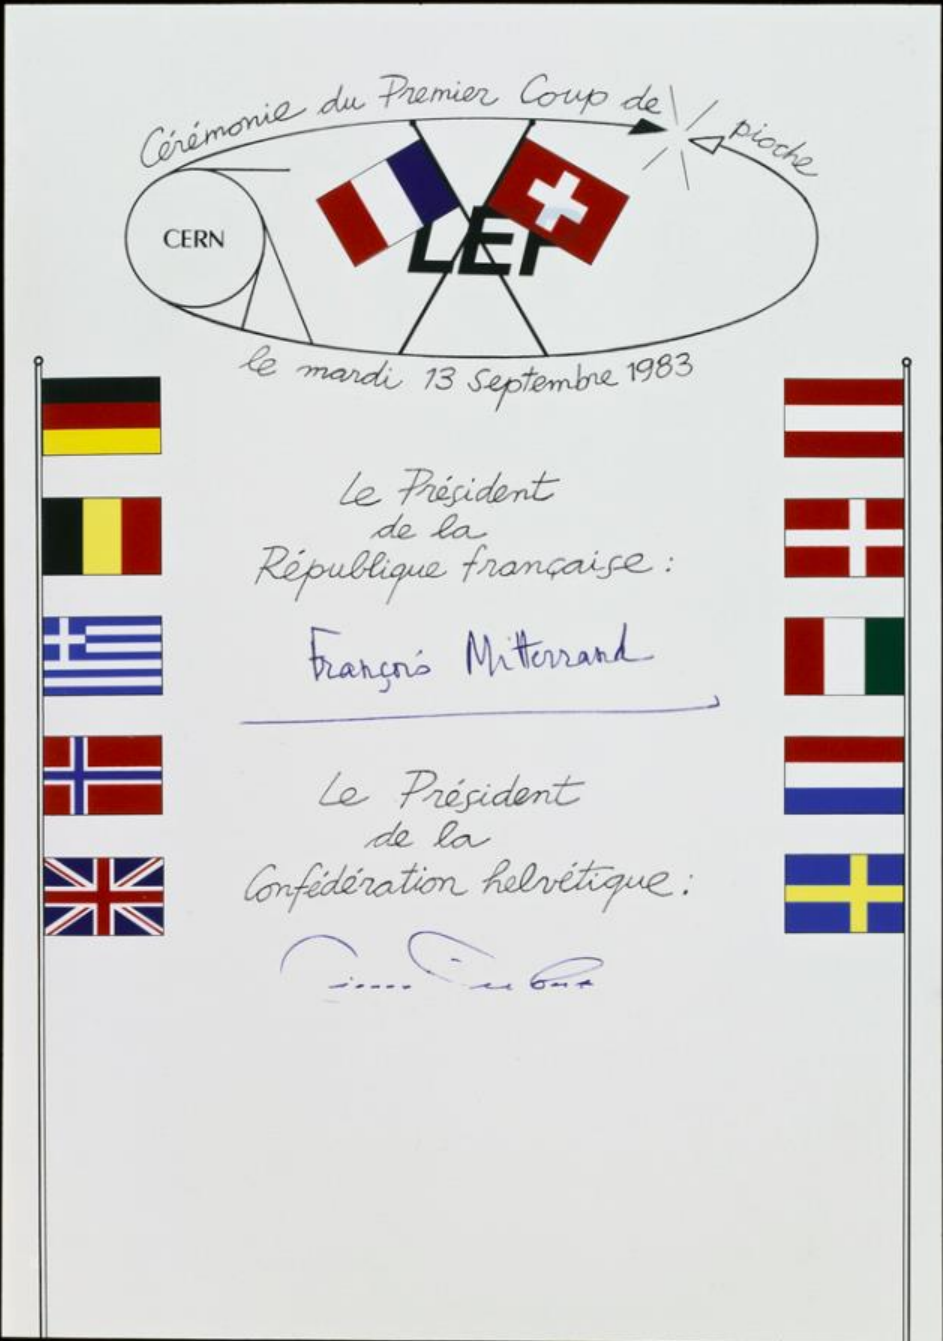 Cérémonie du Premier Coup de pioche
CERN
LEP
le mardi 13 Septembre 1983
Le Président
de la
République française :
François Mitterrand
Le Président
de la
Confédération helvétique :